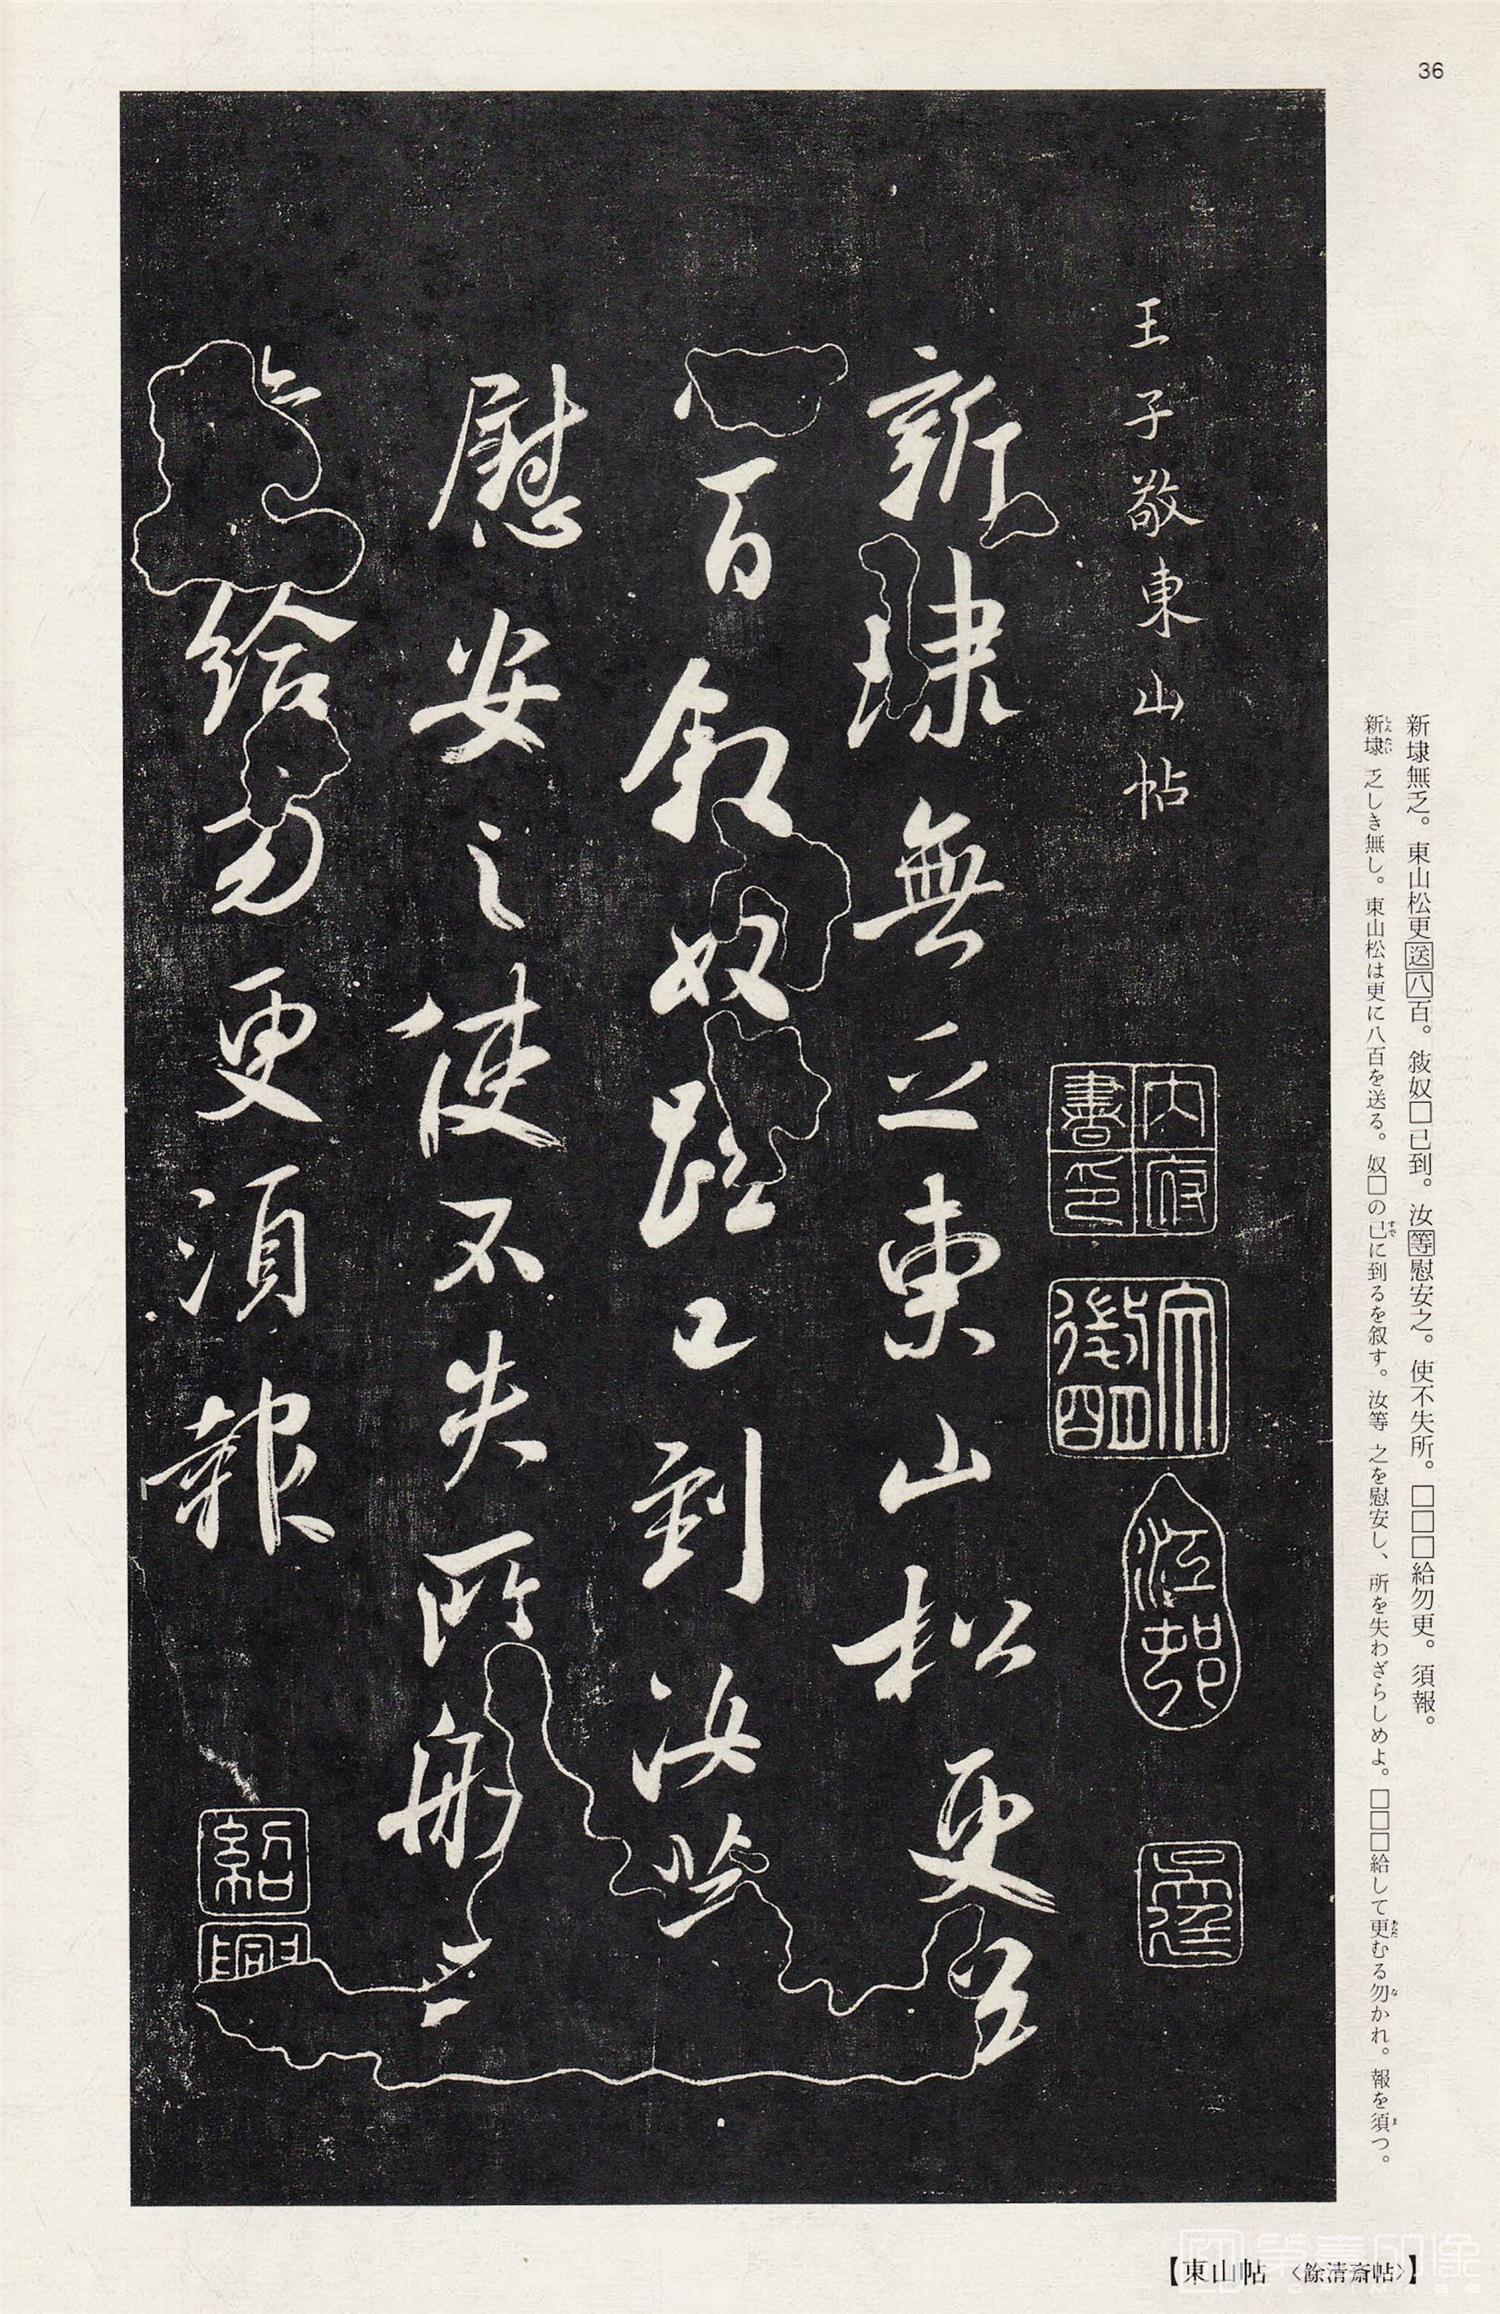 36
新埭無乏。東山松更送八百。敍奴□已到。汝等慰安之。使不失所。□□□給勿更。須報。
新埭乏しき無し。東山松は更に八百を送る。奴□の已に到るを叙す。汝等 之を慰安し、所を失わざらしめよ。□□□給して更むる勿かれ。報を須つ。
王子敬東山帖
內府書印
江邨
新埭無乏東山松更
百敘奴已到汝
慰安之使不失所
給勿更須報
紹興
【東山帖 〈餘清斎帖〉】